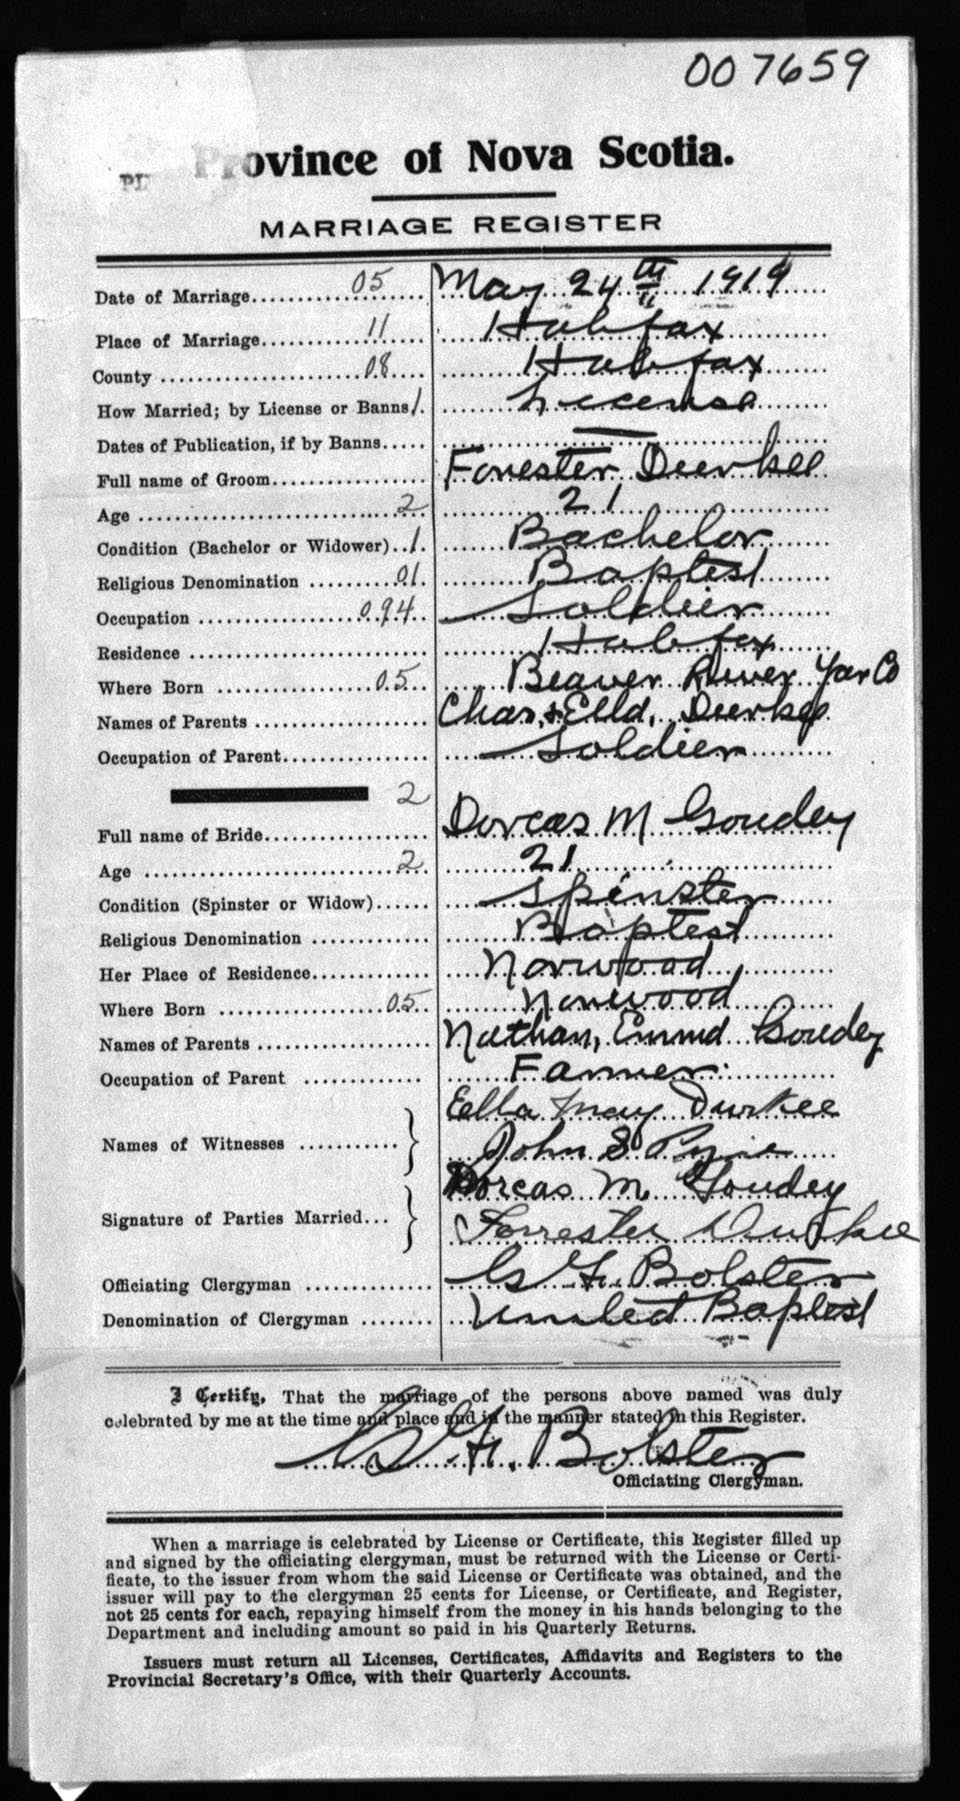 007659
Province of Nova Scotia.
MARRIAGE REGISTER
Date of Marriage 05 May 24th 1919
Place of Marriage 11 Halifax
County 08 Halifax
How Married; by License or Banns 1 License
Dates of Publication, if by Banns —
Full name of Groom Forrester Deurkee
Age 2 21
Condition (Bachelor or Widower) 1 Bachelor
Religious Denomination 01 Baptist
Occupation 094 Soldier
Residence Halifax
Where Born 05 Beaver River Yar Co
Names of Parents Chas, & Ella, Deurkee
Occupation of Parent Soldier
2
Full name of Bride Dorcas M Goudey
Age 2 21
Condition (Spinster or Widow) Spinster
Religious Denomination Baptist
Her Place of Residence Norwood
Where Born 05 Norwood
Names of Parents Nathan, Emma Goudey
Occupation of Parent Farmer
Names of Witnesses Ella May Durkee
John S Pyne
Signature of Parties Married Dorcas M. Goudey
Forrester Durkee
Officiating Clergyman Bolster
Denomination of Clergyman United Baptist
I Certify, That the marriage of the persons above named was duly
celebrated by me at the time and place and in the manner stated in this Register.
Bolster
Officiating Clergyman.
When a marriage is celebrated by License or Certificate, this Register filled up
and signed by the officiating clergyman, must be returned with the License or Certi-
ficate, to the issuer from whom the said License or Certificate was obtained, and the
issuer will pay to the clergyman 25 cents for License, or Certificate, and Register,
not 25 cents for each, repaying himself from the money in his hands belonging to the
Department and including amount so paid in his Quarterly Returns.
Issuers must return all Licenses, Certificates, Affidavits and Registers to the
Provincial Secretary's Office, with their Quarterly Accounts.